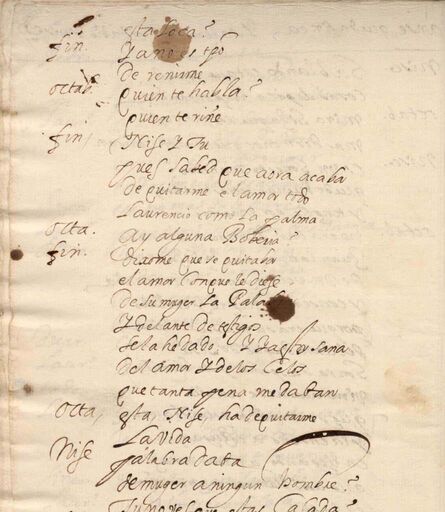 esta loca?
fin. ya no es tpo
de reñirme
octab. quien te habla?
quien te riñe
fin. Nise y tu
pues sabed que aora acaba
de quitarme el amor todo
Laurencio como la palma
octa. ay alguna Boberia?
fin. dixome que se quitaba
el amor con que le diese
de su muger la Palabra
y delante de testigos
se la he dado, y ya estoy sana
del amor y de los celos
que tanta pena me daban
octa, esta, Nise ha de quitarme
La vida
Nise palabra data
de muger a ningun hombre?
tu no ves que estas casada?